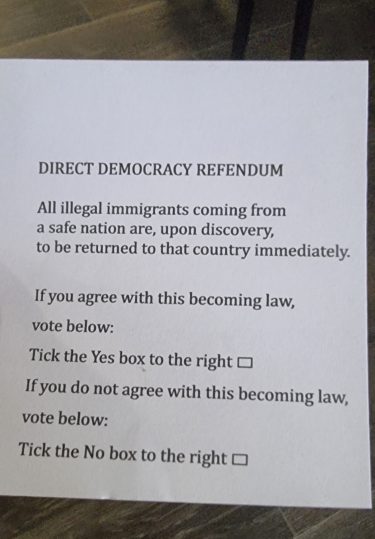 DIRECT DEMOCRACY REFENDUM
All illegal immigrants coming from
a safe nation are, upon discovery,
to be returned to that country immediately.
If you agree with this becoming law,
vote below:
Tick the Yes box to the right ☐
If you do not agree with this becoming law,
vote below:
Tick the No box to the right ☐